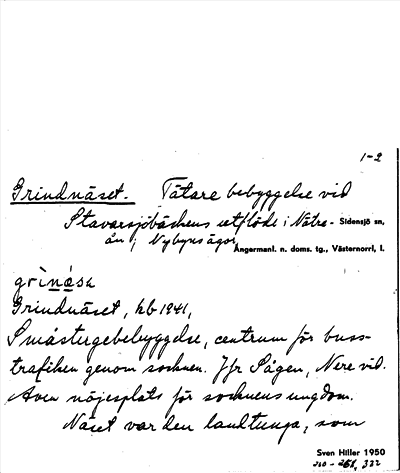 1-2
Grindnäset. Tätare bebyggelse vid
Stavarsjöbäckens utflöde i Nätra- Sidensjö sn,
ån, i Nybyns ägor, Ångermanl. n. doms. tg., Västernorrl. l.
Grindnäset, hb 1941,
Småstugebebyggelse, centrum för buss-
trafiken genom socknen. Jfr Sågen, Nere vid.
Även nöjesplats för socknens ungdom.
Näset var den landtunga, som
Sven Hiller 1950